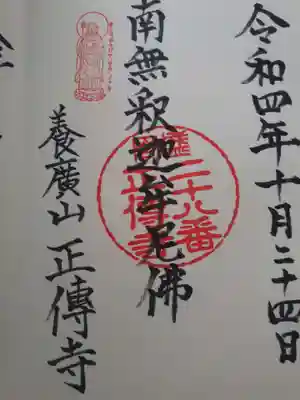 令和四年十月二十四日
南無釋迦牟尼佛
二十八番
養廣山 正傳寺